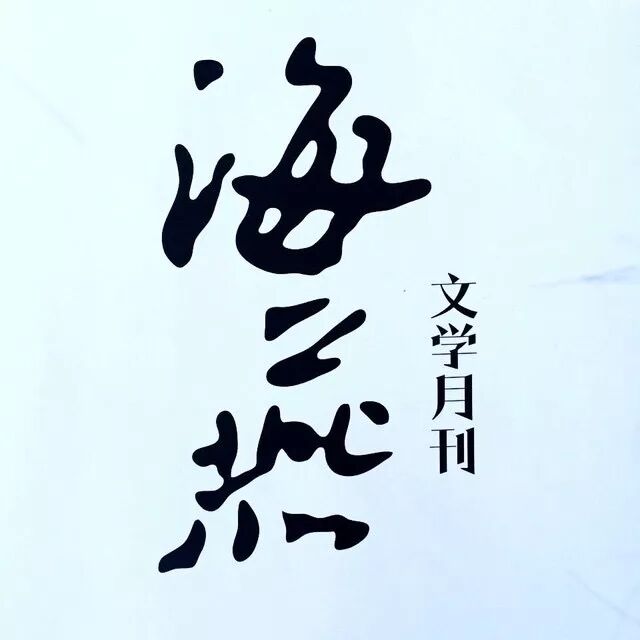 海燕
文学月刊